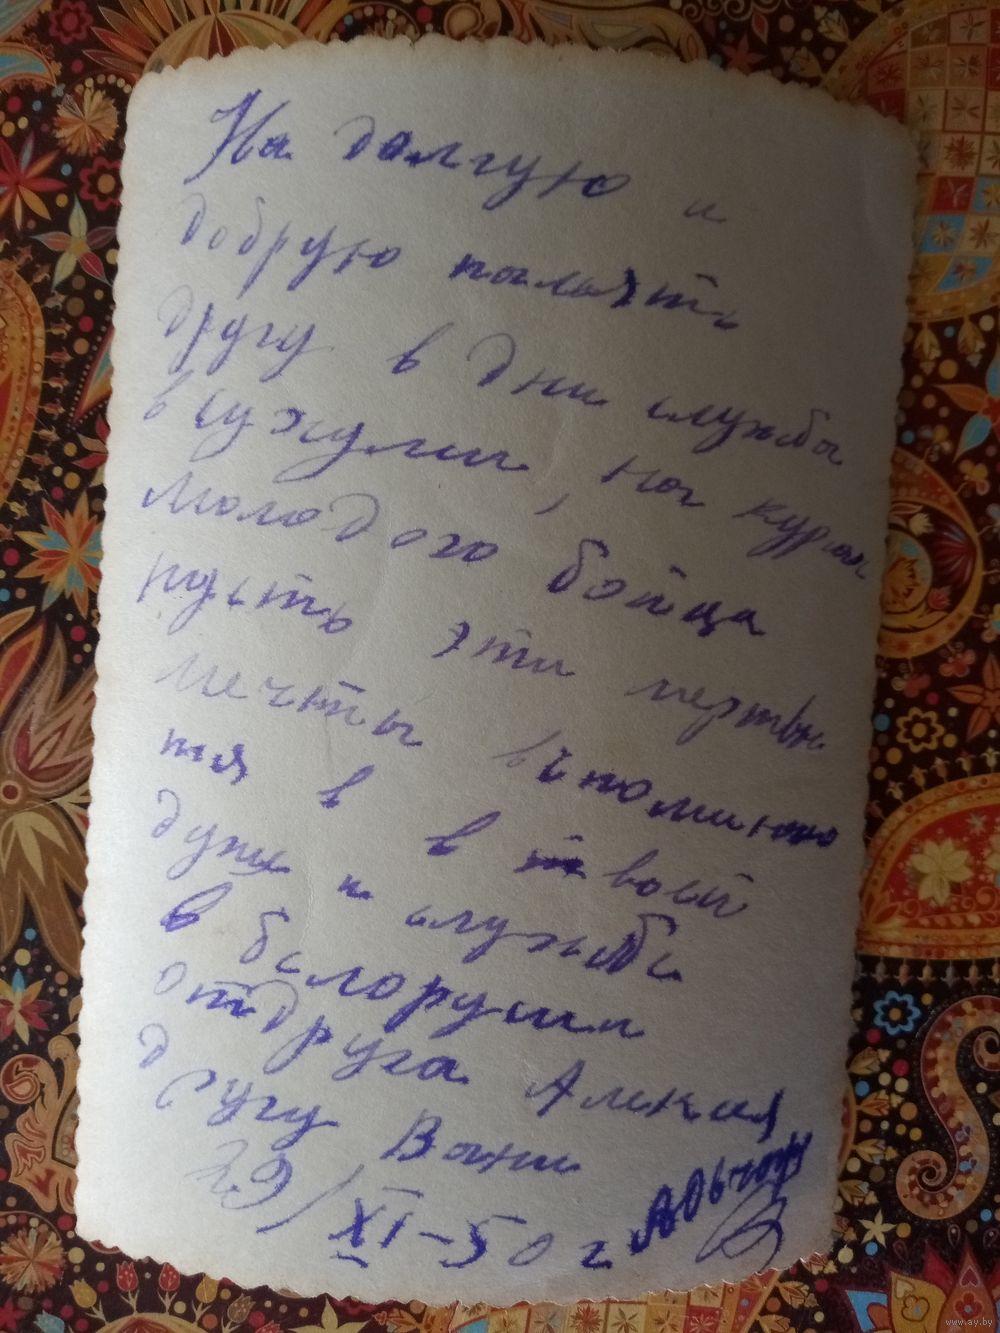 На долгую и
добрую память
другу в дни службы
в Сухуми, на курсах
молодого бойца
пусть эти мертвы
мечты вспоминаю
тся в в твоей
душе и службе
в белорусии
от друга Алексея
другу Вани
29/XI-50 г.
www.ay.by